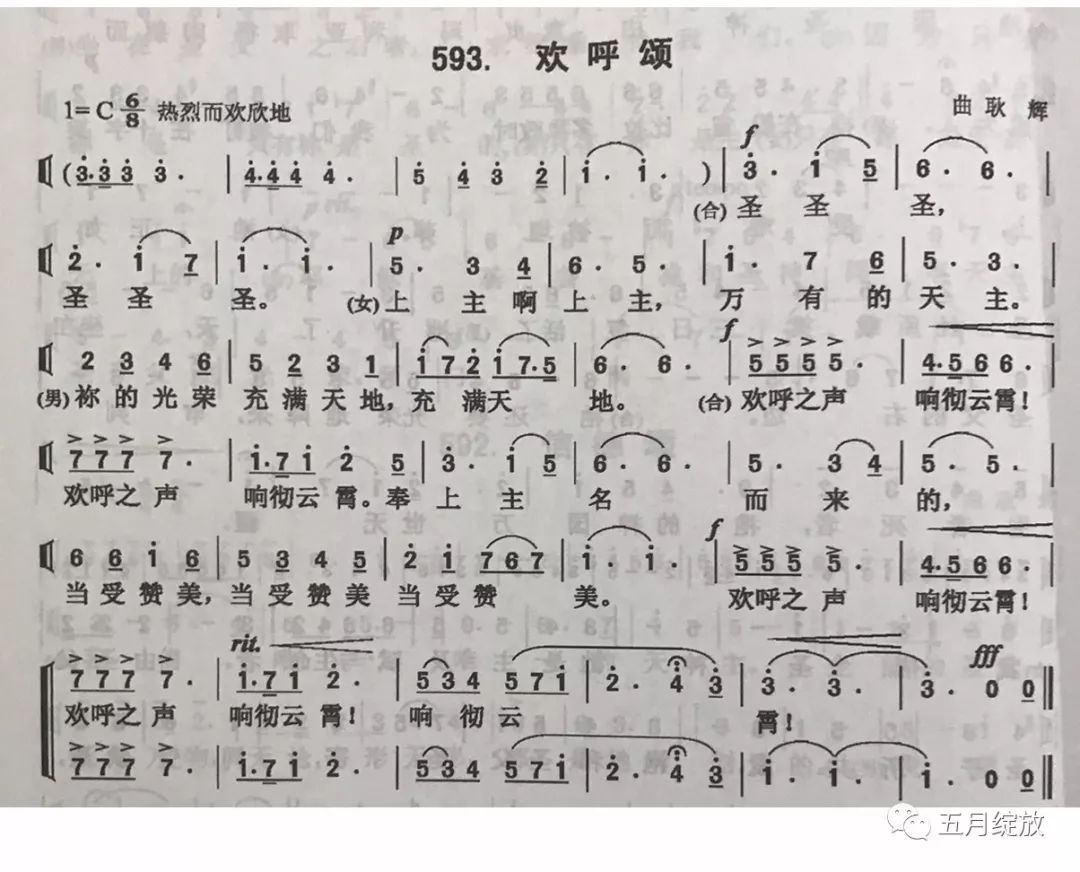 593. 欢呼颂
1=C 6/8 热烈而欢欣地 曲 耿 辉
f
(3·3 3 3· | 4·4 4 4· | 5 4 3 2 | i· i· ) | 3· i 5 | 6· 6· |
(合) 圣 圣 圣,
2· i 7 | i· i· | p 5· 3 4 | 6· 5· | i· 7 6 | 5· 3· |
圣 圣 圣。 (女) 上 主 啊 上 主, 万 有 的 天 主。
f
2 3 4 6 | 5 2 3 1 | i 7 2 i 7·5 | 6· 6· | 5 5 5 5· | 4·5 6 6 6· |
(男) 祢 的 光 荣 充 满 天 地, 充 满 天 地。 (合) 欢呼之声 响彻云霄!
7 7 7 7· | i·7 i 2· 5 | 3· i 5 | 6· 6· | 5· 3 4 | 5· 5· |
欢呼之声 响彻云霄。奉 上 主 名 而 来 的,
f
6 6 i 6 | 5 3 4 5 | 2 i 7 6 7 | i· i· | 5 5 5 5· | 4·5 6 6 6· |
当 受 赞 美, 当 受 赞 美 当 受 赞 美。 欢呼之声 响彻云霄!
rit. fff
7 7 7 7· | i·7 i 2· | 5 3 4 5 7 i | 2· 4 3 | 3· 3· | 3· 0 0 ‖
欢呼之声 响彻云霄! 响 彻 云 霄!
7 7 7 7· | i·7 i 2· | 5 3 4 5 7 i | 2· 4 3 | i· i· | i· 0 0 ‖
五月绽放